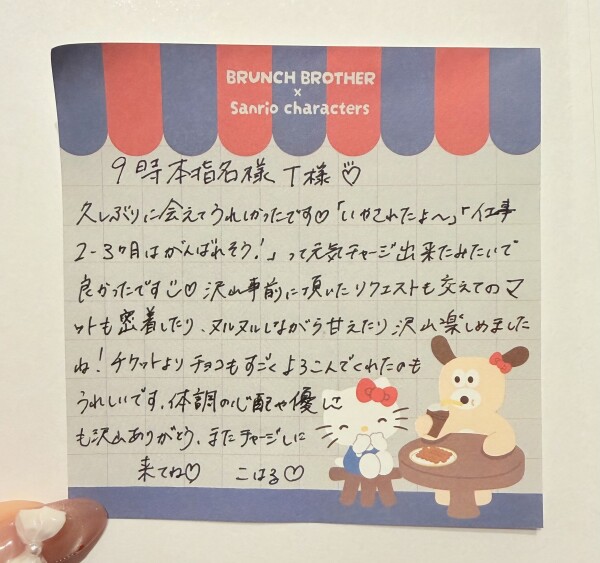 BRUNCH BROTHER
×
Sanrio characters
9時本指名様 T様♡
久しぶりに会えてうれしかったです♡「いやされたよ〜」「仕事
2-3ヶ月はがんばれそう!」って元気チャージ出来たみたいで
良かったです♡沢山事前に頂いたリクエストも交えてのマ
ットも密着したり、ヌルヌルしながら甘えたり沢山楽しめました
ね!チケットよりチョコもすごくよろこんでくれたのも
うれしいです、体調の心配や優しさ
も沢山ありがとう、またチャージしに
来てね♡ こはる♡